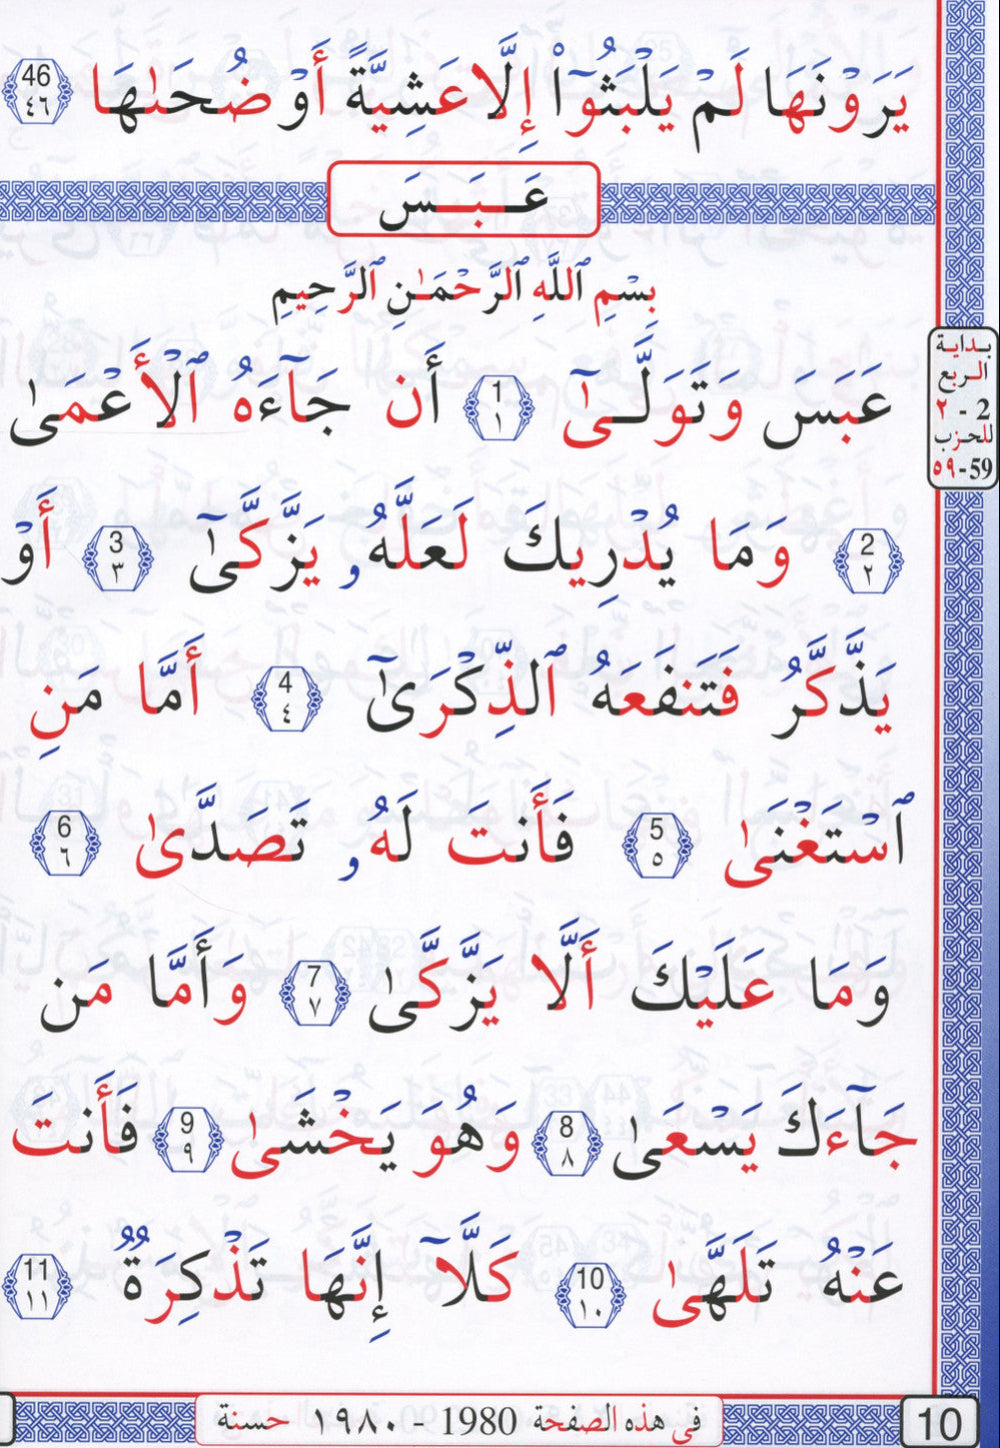 يَرَوْنَهَا لَمْ يَلْبَثُوٓا۟ إِلَّا عَشِيَّةً أَوْ ضُحَىٰهَا 46 ٤٦
عَبَسَ
بِسْمِ ٱللَّهِ ٱلرَّحْمَـٰنِ ٱلرَّحِيمِ
بداية
الربع
2 - ٢
للحزب
59-٥٩
عَبَسَ وَتَوَلَّىٰٓ 1 ١ أَن جَآءَهُ ٱلْأَعْمَىٰ
2 ٢ وَمَا يُدْرِيكَ لَعَلَّهُۥ يَزَّكَّىٰٓ 3 ٣ أَوْ
يَذَّكَّرُ فَتَنفَعَهُ ٱلذِّكْرَىٰٓ 4 ٤ أَمَّا مَنِ
ٱسْتَغْنَىٰ 5 ٥ فَأَنتَ لَهُۥ تَصَدَّىٰ 6 ٦
وَمَا عَلَيْكَ أَلَّا يَزَّكَّىٰ 7 ٧ وَأَمَّا مَن
جَآءَكَ يَسْعَىٰ 8 ٨ وَهُوَ يَخْشَىٰ 9 ٩ فَأَنتَ
عَنْهُ تَلَهَّىٰ 10 ١٠ كَلَّآ إِنَّهَا تَذْكِرَةٌ 11 ١١
في هذه الصفحة 1980 - ١٩٨٠ حسنة
10